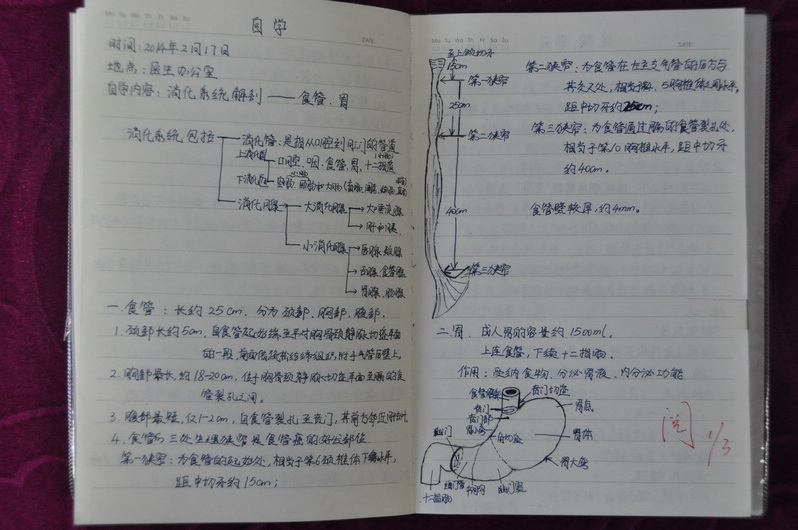 自学
DATE
时间:2014年2月17日
地点:医生办公室
自学内容:消化系统解剖——食管、胃
消化系统包括
消化管:是指从口腔到肛门的管道
上消化道
口腔、咽、食管、胃、十二指肠
下消化道
消化腺
大消化腺
大唾液腺
肝和胰
小消化腺
唇腺、颊腺
舌腺、食管腺
胃腺、肠腺
一 食管:长约25cm,分为颈部、胸部、腹部。
1. 颈部长约5cm,自食管起始端至平对胸骨颈静脉切迹平面
的一段,前面借疏松结缔组织,附于气管后壁上。
2. 胸部最长,约18-20cm,位于胸骨颈静脉切迹平面至膈的食
管裂孔之间。
3. 腹部最短,仅1-2cm,自食管裂孔至贲门,其前方邻近肝左叶
4. 食管的三处生理狭窄是食管癌的好发部位
第一狭窄:为食管的起始处,相当于第6颈椎体下缘水平,
距中切牙约15cm;
DATE
15cm
第一狭窄
25cm
第二狭窄
40cm
第三狭窄
第二狭窄:为食管在左主支气管的后方与
其交叉处,相当于第4、5胸椎体之间水平,
距中切牙约25cm;
第三狭窄:为食管通过膈的食管裂孔处,
相当于第10胸椎水平,距中切牙
约40cm。
食管壁较厚,约4mm。
二 胃、成人胃的容量约1500ml。
上连食管,下续十二指肠。
作用:受纳食物、分泌胃液、内分泌功能
食管腹部
贲门切迹
贲门
贲门部
胃底
胃小弯
幽门
角切迹
胃体
胃大弯
幽门管
幽门窦
十二指肠
阅
1/3